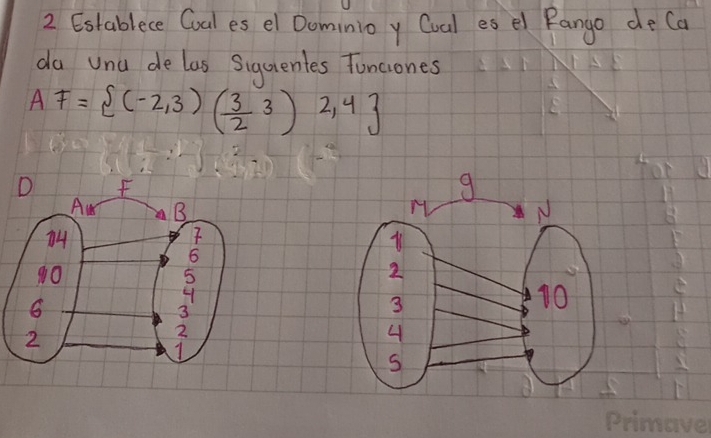 2 Establece Cual es el Dominio y Cual es el Rango de Ca
da una de las Siguientes Funciones
A F = {(-2,3) (3/2 3) 2,4}
D
A F B
14
10
6
2
7
6
5
4
3
2
1
M g N
1
2
3
4
5
10
Primave